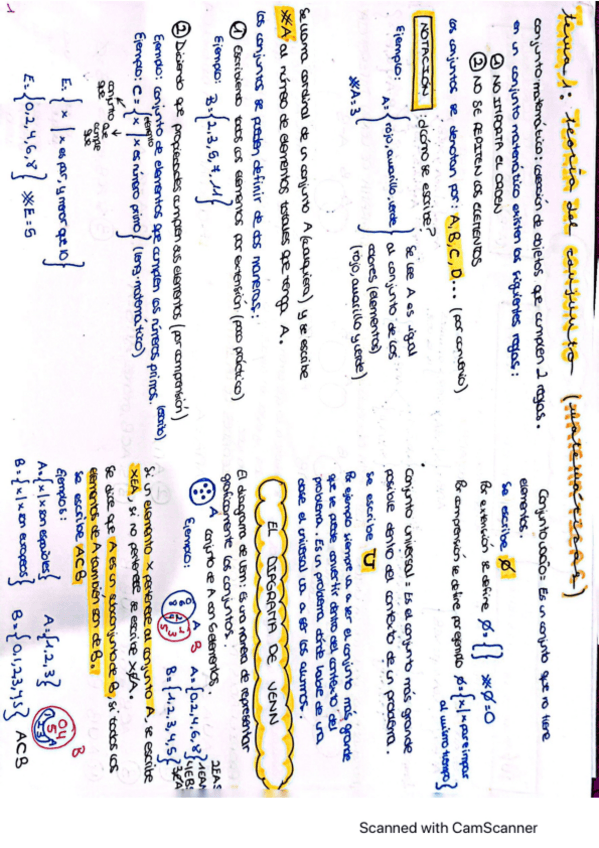 tema 1: teoría del conjunto (MATEMÁTICAS)
conjunto matemático: colección de objetos que cumplen 2 reglas.
en un conjunto matemático existen las siguientes reglas:
① NO IMPORTA EL ORDEN
② NO SE REPITEN LOS ELEMENTOS
los conjuntos se denotan por: A, B, C, D... (por convenio)
NOTACIÓN: ¿cómo se escribe?
Ejemplo: A = {rojo, amarillo, verde}
Se lee A es igual
al conjunto de los
colores (elementos)
(rojo, amarillo y verde)
※A=3
Se llama cardinal de un conjunto A (cualquiera) y se escribe
※A al número de elementos totales que tenga A.
Los conjuntos se pueden definir de dos maneras:
① Escribiendo todos los elementos por extensión (poco práctico)
Ejemplo: B={2,3,5,7,11}
② Diciendo que propiedades cumplen sus elementos (por comprensión)
Ejemplo: conjunto de elementos que cumplen los números primos. (escrito)
Ejemplo: C = {x | x es número primo} (leng. matemático)
conjunto que
cumple que
E: {x | x es par, y menor que 10}
E={0,2,4,6,8} ※E=5
Conjunto vacío = Es un conjunto que no tiene
elementos.
Se escribe ∅
Por extensión se define ∅={ } ※∅=0
Por comprensión se define por ejemplo ∅={x | x par e impar
al mismo tiempo}
Conjunto universal = Es el conjunto más grande
posible dentro del contexto de un problema.
se escribe U
Por ejemplo siempre va a ser el conjunto más grande
que se puede convertir dentro del contexto del
problema. Es un problema donde hable de una
clase el universal va a ser los alumnos.
EL DIAGRAMA DE VENN
El diagrama de Venn: es una manera de representar
gráficamente los conjuntos.
A conjunto de A con 5 elementos.
Ejemplo: A B A={0,2,4,6,8}
B={1,2,3,4,5}
Si un elemento x pertenece al conjunto A, se escribe
x∈A, si no pertenece se escribe x∉A.
se dice que A es un subconjunto de B, si todos los
elementos de A también son de B.
Se escribe A⊂B
Ejemplos:
A={x | x son españoles} A={1,2,3}
B={x | x son europeos} B={0,1,2,3,4,5} A⊂B
Scanned with CamScanner